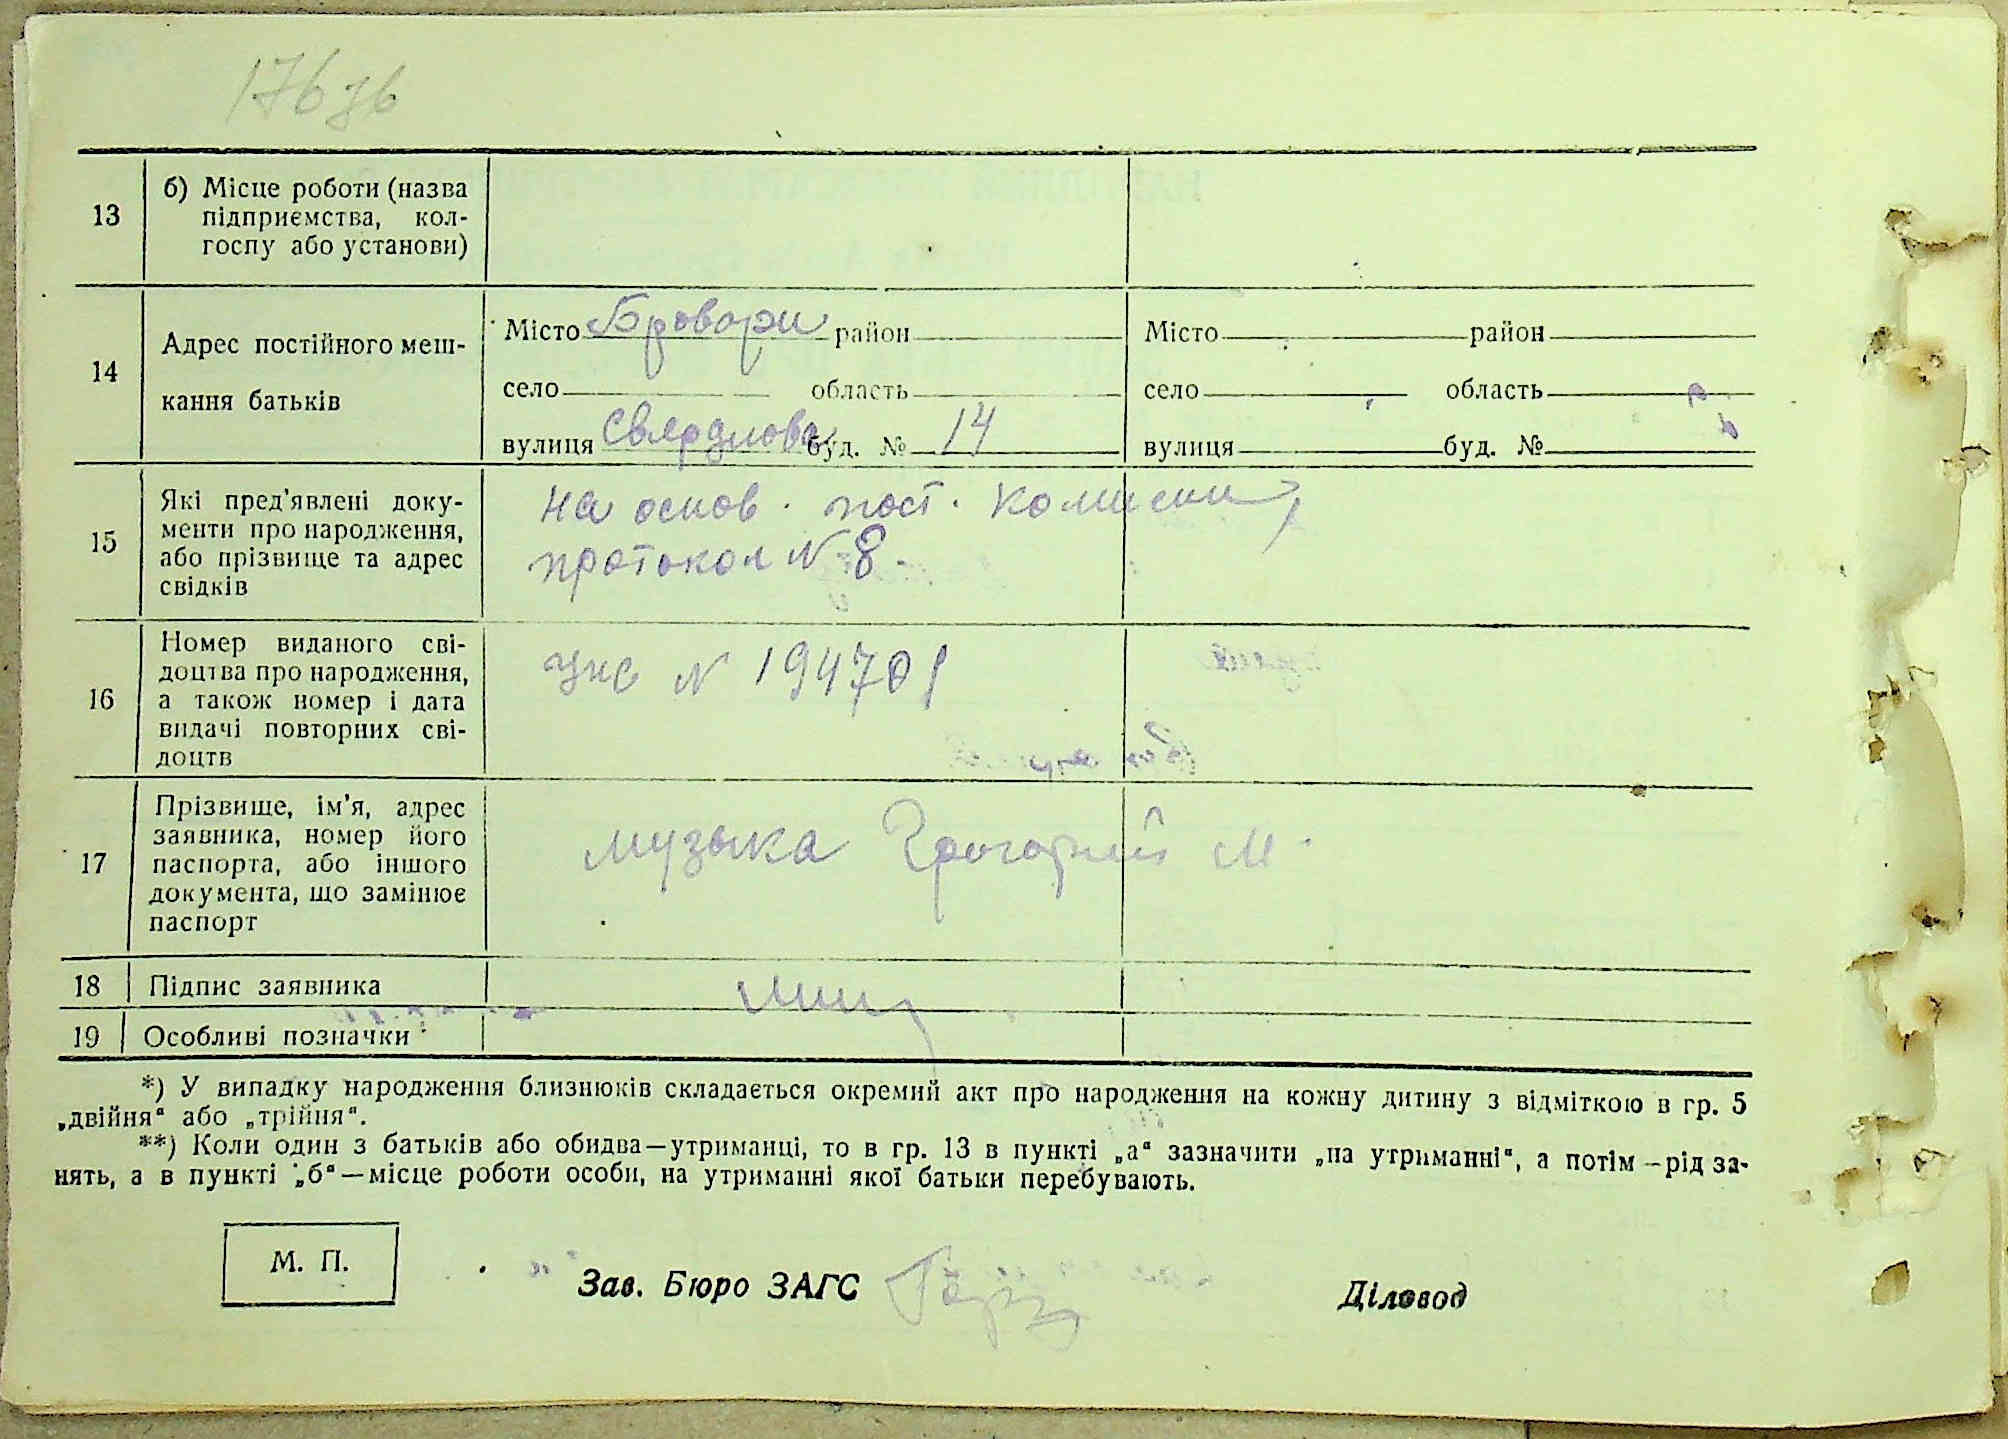 176зв
13
б) Місце роботи (назва
підприємства, кол-
госпу або установи)
14
Адрес постійного меш-
кання батьків
Місто Бровари район
село область
вулиця Свердлова буд. № 14
Місто район
село область
вулиця буд. №
15
Які пред'явлені доку-
менти про народження,
або прізвище та адрес
свідків
на основ. пост. комиссии,
протокол N 8.
16
Номер виданого сві-
доцтва про народження,
а також номер і дата
видачі повторних сві-
доцтв
N 194701
17
Прізвище, ім'я, адрес
заявника, номер його
паспорта, або іншого
документа, що замінює
паспорт
Музыка Григорий М.
18
Підпис заявника
19
Особливі позначки
*) У випадку народження близнюків складається окремий акт про народження на кожну дитину з відміткою в гр. 5
„двійня“ або „трійня“.
**) Коли один з батьків або обидва—утриманці, то в гр. 13 в пункті „а“ зазначити „на утриманні“, а потім—рід за-
нять, а в пункті „б“—місце роботи особи, на утриманні якої батьки перебувають.
М. П.
Зав. Бюро ЗАГС
Діловод